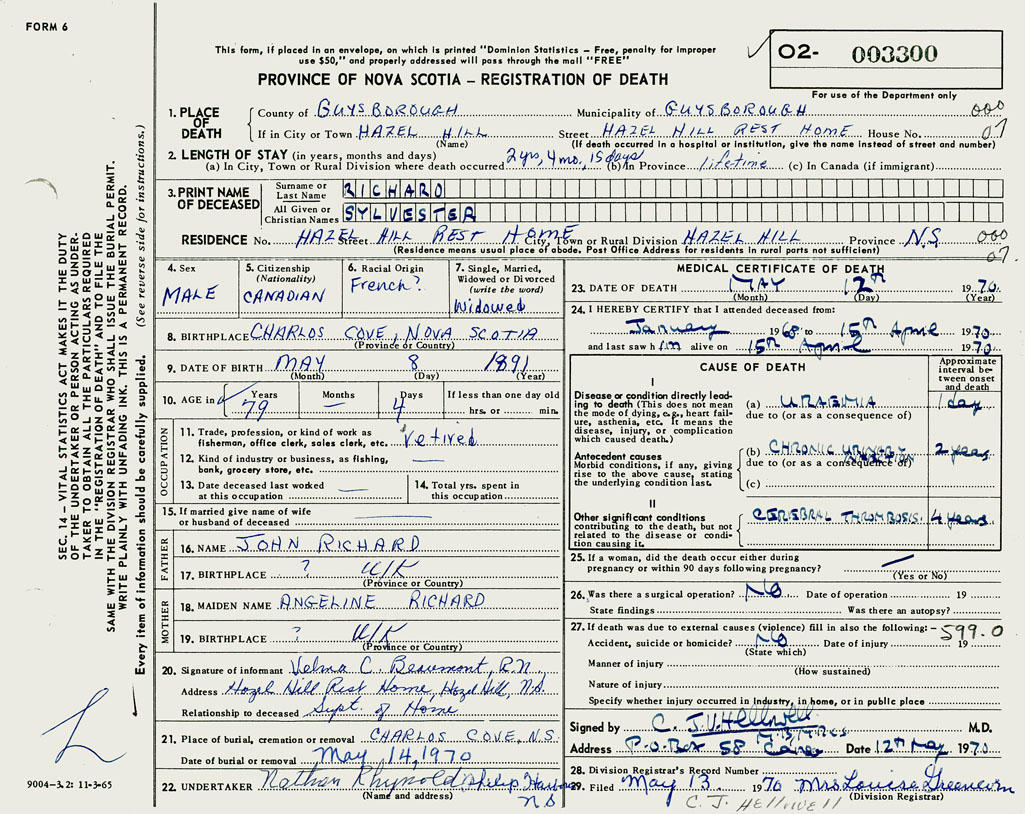 FORM 6
This form, if placed in an envelope, on which is printed "Dominion Statistics – Free, penalty for improper
use $50," and properly addressed will pass through the mail "FREE"
PROVINCE OF NOVA SCOTIA – REGISTRATION OF DEATH
O2- 003300
For use of the Department only
1. PLACE OF DEATH
County of GUYSBOROUGH Municipality of GUYSBOROUGH 000
If in City or Town HAZEL HILL Street HAZEL HILL REST HOME House No. 07
(Name) (If death occurred in a hospital or institution, give the name instead of street and number)
2. LENGTH OF STAY (in years, months and days)
(a) In City, Town or Rural Division where death occurred 2 yrs, 4 mo., 15 days (b) In Province lifetime (c) In Canada (if immigrant)
3. PRINT NAME OF DECEASED
Surname or Last Name RICHARD
All Given or Christian Names SYLVESTER
RESIDENCE No. HAZEL Street HILL REST HOME City, Town or Rural Division HAZEL HILL Province N.S. 000
(Residence means usual place of abode. Post Office Address for residents in rural ports not sufficient) 07.
4. Sex
MALE
5. Citizenship
(Nationality)
CANADIAN
6. Racial Origin
French?
7. Single, Married,
Widowed or Divorced
(write the word)
Widowed
8. BIRTHPLACE CHARLOS COVE, NOVA SCOTIA
(Province or Country)
9. DATE OF BIRTH MAY 8 1891
(Month) (Day) (Year)
10. AGE in
Years
79
Months
—
Days
4
If less than one day old
hrs. or min.
OCCUPATION
11. Trade, profession, or kind of work as
fisherman, office clerk, sales clerk, etc. retired
12. Kind of industry or business, as fishing,
bank, grocery store, etc. —
13. Date deceased last worked
at this occupation —
14. Total yrs. spent in
this occupation
15. If married give name of wife
or husband of deceased —
FATHER
16. NAME JOHN RICHARD
17. BIRTHPLACE ? U/K
(Province or Country)
MOTHER
18. MAIDEN NAME ANGELINE RICHARD
19. BIRTHPLACE ? U/K
(Province or Country)
20. Signature of informant Velma C. Beaumont, R.N.
Address Hazel Hill Rest Home, Hazel Hill, N.S.
Relationship to deceased Supt. of Home
21. Place of burial, cremation or removal CHARLOS COVE, N.S.
Date of burial or removal May 14, 1970
22. UNDERTAKER Nathan Rhynold Philip Harbour
(Name and address) N S
MEDICAL CERTIFICATE OF DEATH
23. DATE OF DEATH MAY 12th 1970
(Month) (Day) (Year)
24. I HEREBY CERTIFY that I attended deceased from:
January 1968 to 15th April 1970
and last saw him alive on 15th April 1970
CAUSE OF DEATH
Approximate
interval be-
tween onset
and death
I
Disease or condition directly lead-
ing to death (This does not mean
the mode of dying, e.g., heart fail-
ure, asthenia, etc. It means the
disease, injury, or complication
which caused death.)
(a) URAEMIA 1 day
due to (or as a consequence of)
Antecedent causes
Morbid conditions, if any, giving
rise to the above cause, stating
the underlying condition last.
(b) CHRONIC URINARY 2 years
due to (or as a consequence of)
(c)
II
Other significant conditions
contributing to the death, but not
related to the disease or condi-
tion causing it.
CEREBRAL THROMBOSIS. 4 years
25. If a woman, did the death occur either during
pregnancy or within 90 days following pregnancy? —
(Yes or No)
26. Was there a surgical operation? No Date of operation 19
State findings Was there an autopsy?
27. If death was due to external causes (violence) fill in also the following: – 599.0
Accident, suicide or homicide? No Date of injury 19
(State which)
Manner of injury
(How sustained)
Nature of injury
Specify whether injury occurred in Industry, in home, or in public place
Signed by C. J. V. Hellwell M.D.
Address P.O. Box 58 Canso Date 12th May 1970
28. Division Registrar's Record Number
29. Filed May 13 1970 Mrs Louise Greencorn
(Division Registrar)
C. J. HELLIWELL
SEC. 14 – VITAL STATISTICS ACT MAKES IT THE DUTY
OF THE UNDERTAKER OR PERSON ACTING AS UNDER-
TAKER TO OBTAIN ALL THE PARTICULARS REQUIRED
IN THE "REGISTRATION OF DEATH" AND TO FILE THE
SAME WITH THE DIVISION REGISTRAR WHO SHALL ISSUE THE BURIAL PERMIT.
WRITE PLAINLY WITH UNFADING INK. THIS IS A PERMANENT RECORD.
Every item of information should be carefully supplied. (See reverse side for instructions.)
9004-3.2: 11-3-65